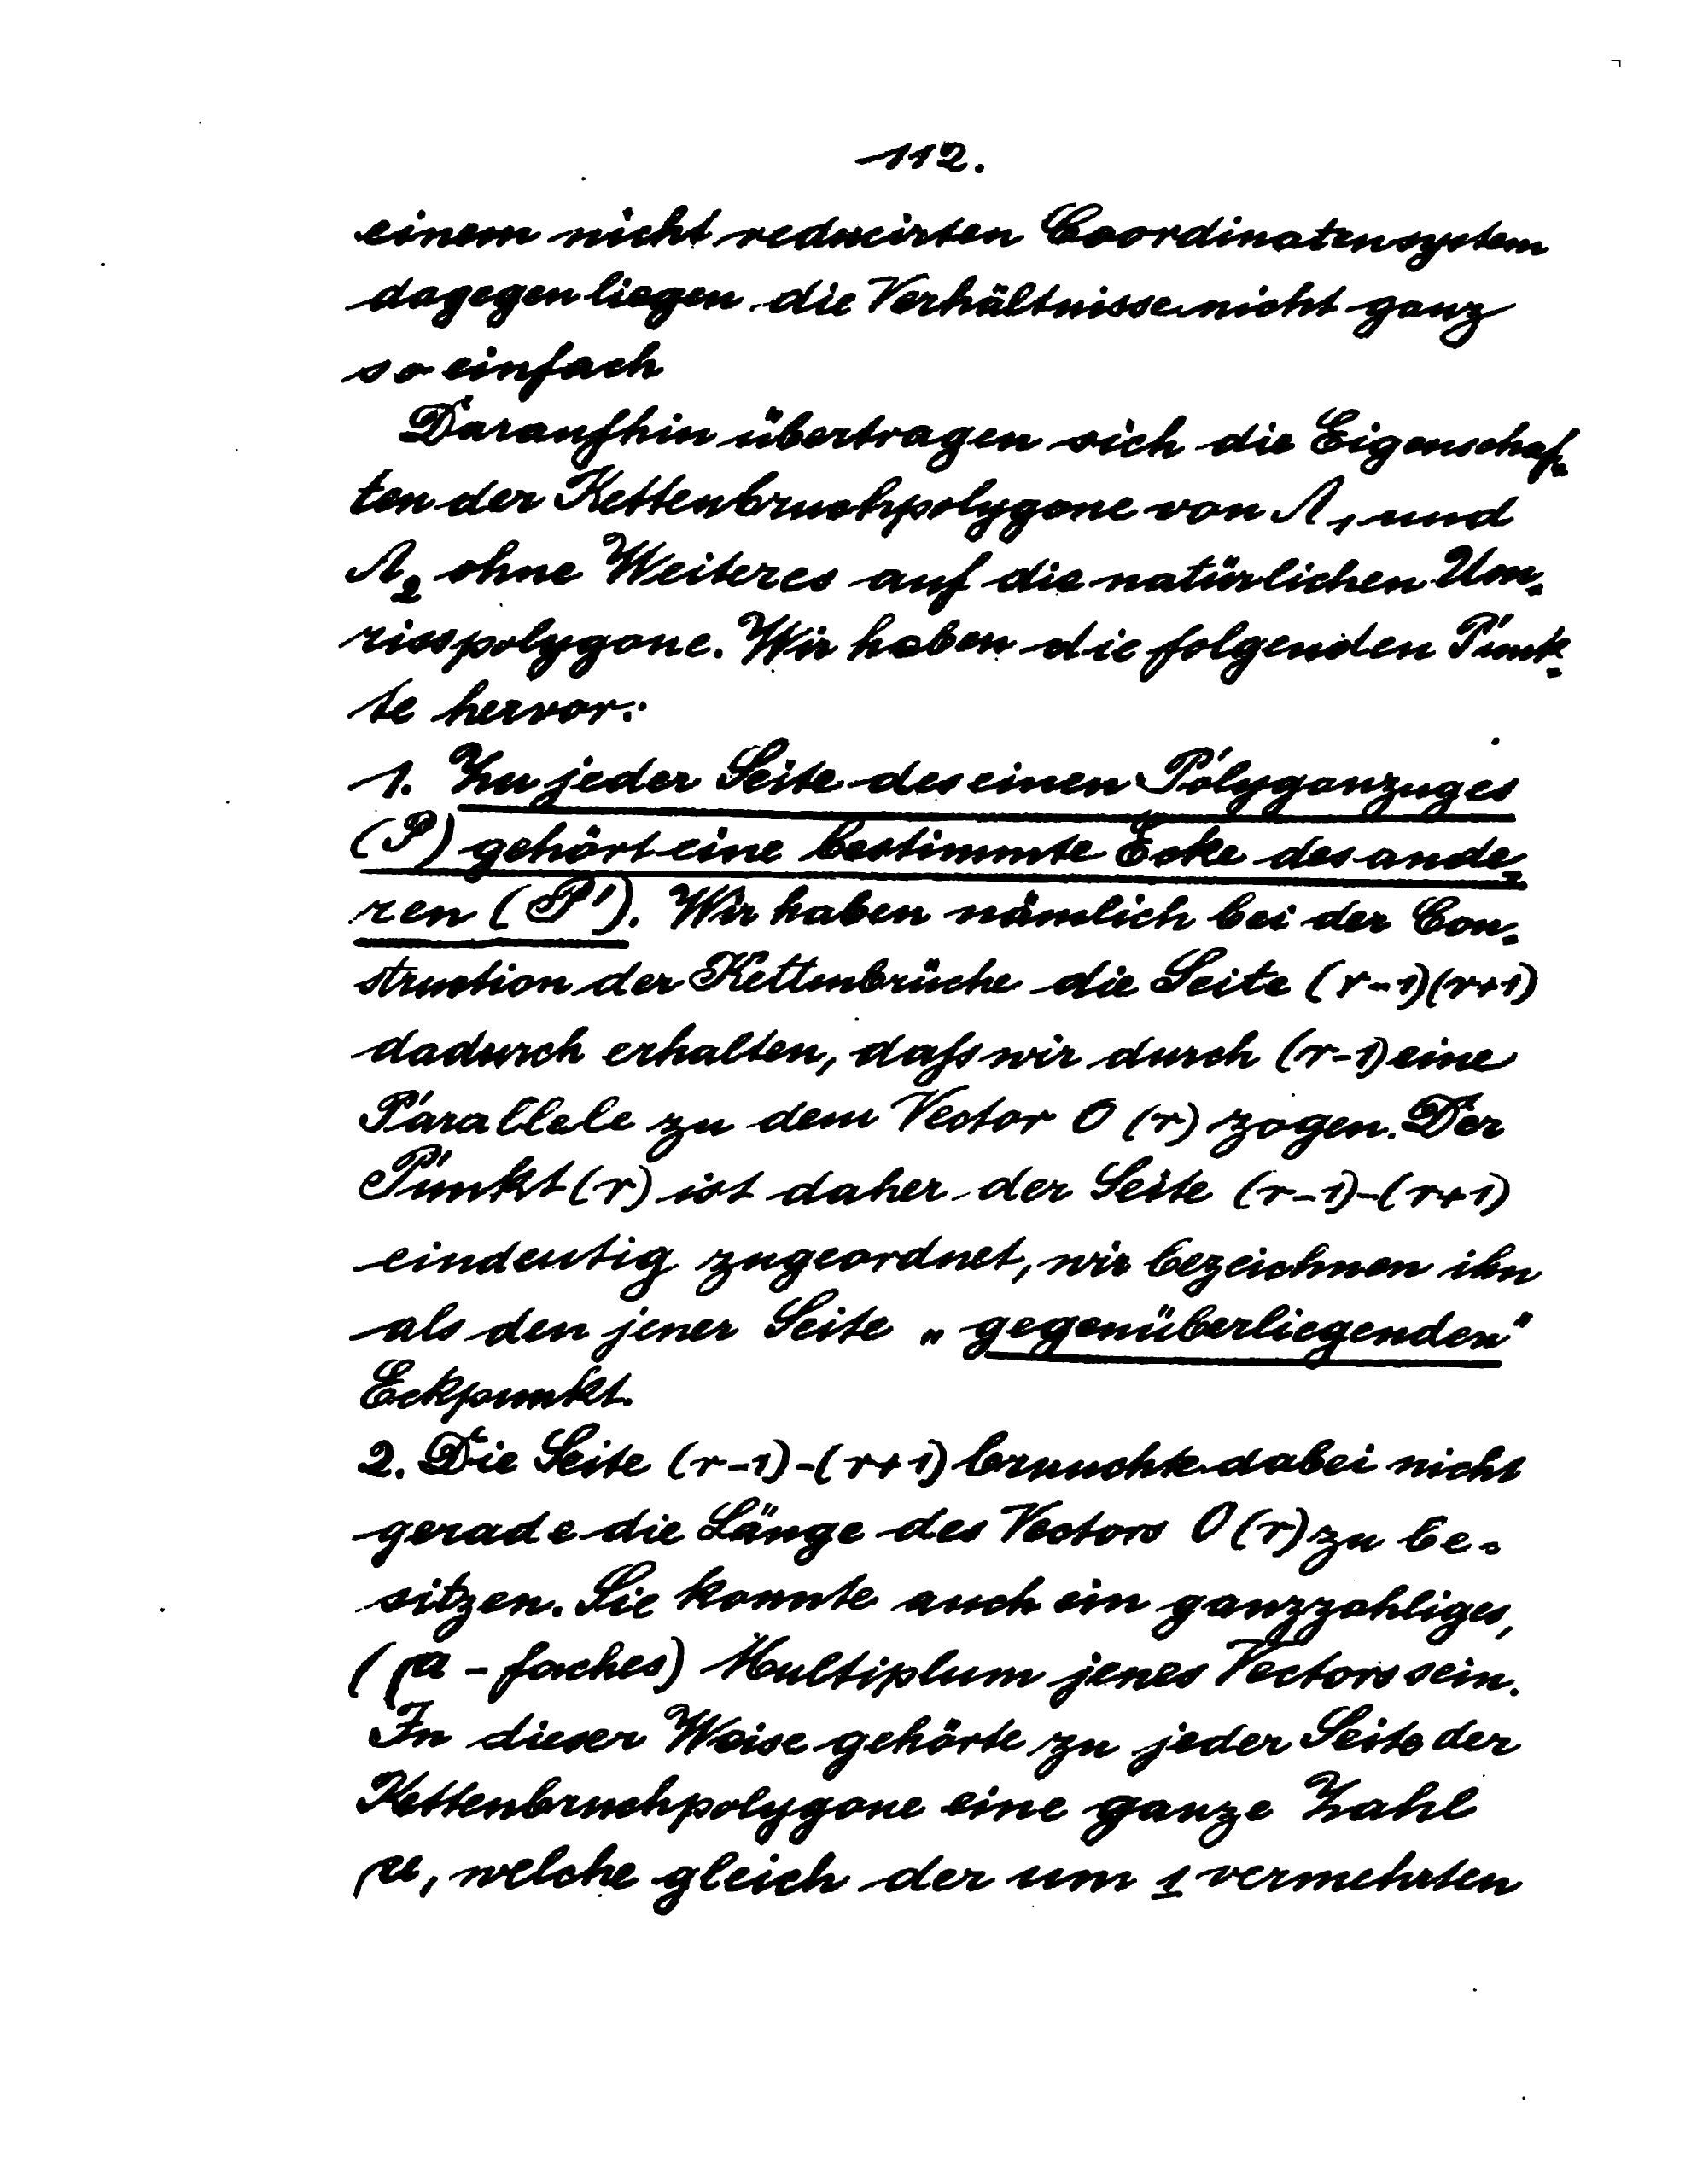 112.
einem nicht reducirten Coordinatensystem
dagegen liegen die Verhältnisse nicht ganz
so einfach
Daraufhin übertragen sich die Eigenschaf-
ten der Kettenbruchpolygone von Λ₁ und
Λ₂ ohne Weiteres auf die natürlichen Um-
risspolygone. Wir heben die folgenden Punk-
te hervor:
1. Zu jeder Seite des einen Polygonzuges
(P) gehört eine bestimmte Ecke des ande-
ren (P'). Wir haben nämlich bei der Con-
struction der Kettenbrüche die Seite (r-1)(r+1)
dadurch erhalten, daſs wir durch (r-1) eine
Parallele zu dem Vector O (r) zogen. Der
Punkt (r) ist daher der Seite (r-1)-(r+1)
eindeutig zugeordnet, wir bezeichnen ihn
als den jener Seite „gegenüberliegenden"
Eckpunkt.
2. Die Seite (r-1)-(r+1) brauchte dabei nicht
gerade die Länge des Vectors O (r) zu be-
sitzen. Sie konnte auch ein ganzzahliges,
(μ - faches) Multiplum jenes Vectors sein.
In dieser Weise gehörte zu jeder Seite der
Kettenbruchpolygone eine ganze Zahl
μ, welche gleich der um 1 vermehrten